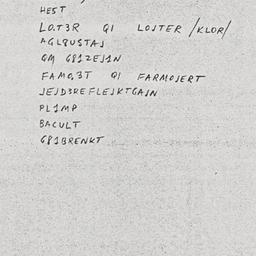 HEST
LO.T3R QI LOJTER /KLOR/
AGL8USTAJ
GM G81ZEJ1N
FAMO,3T QI FARMOJERT
JEJD3REFLEJKTGAJN
PL1MP
BACULT
G81BRENKT